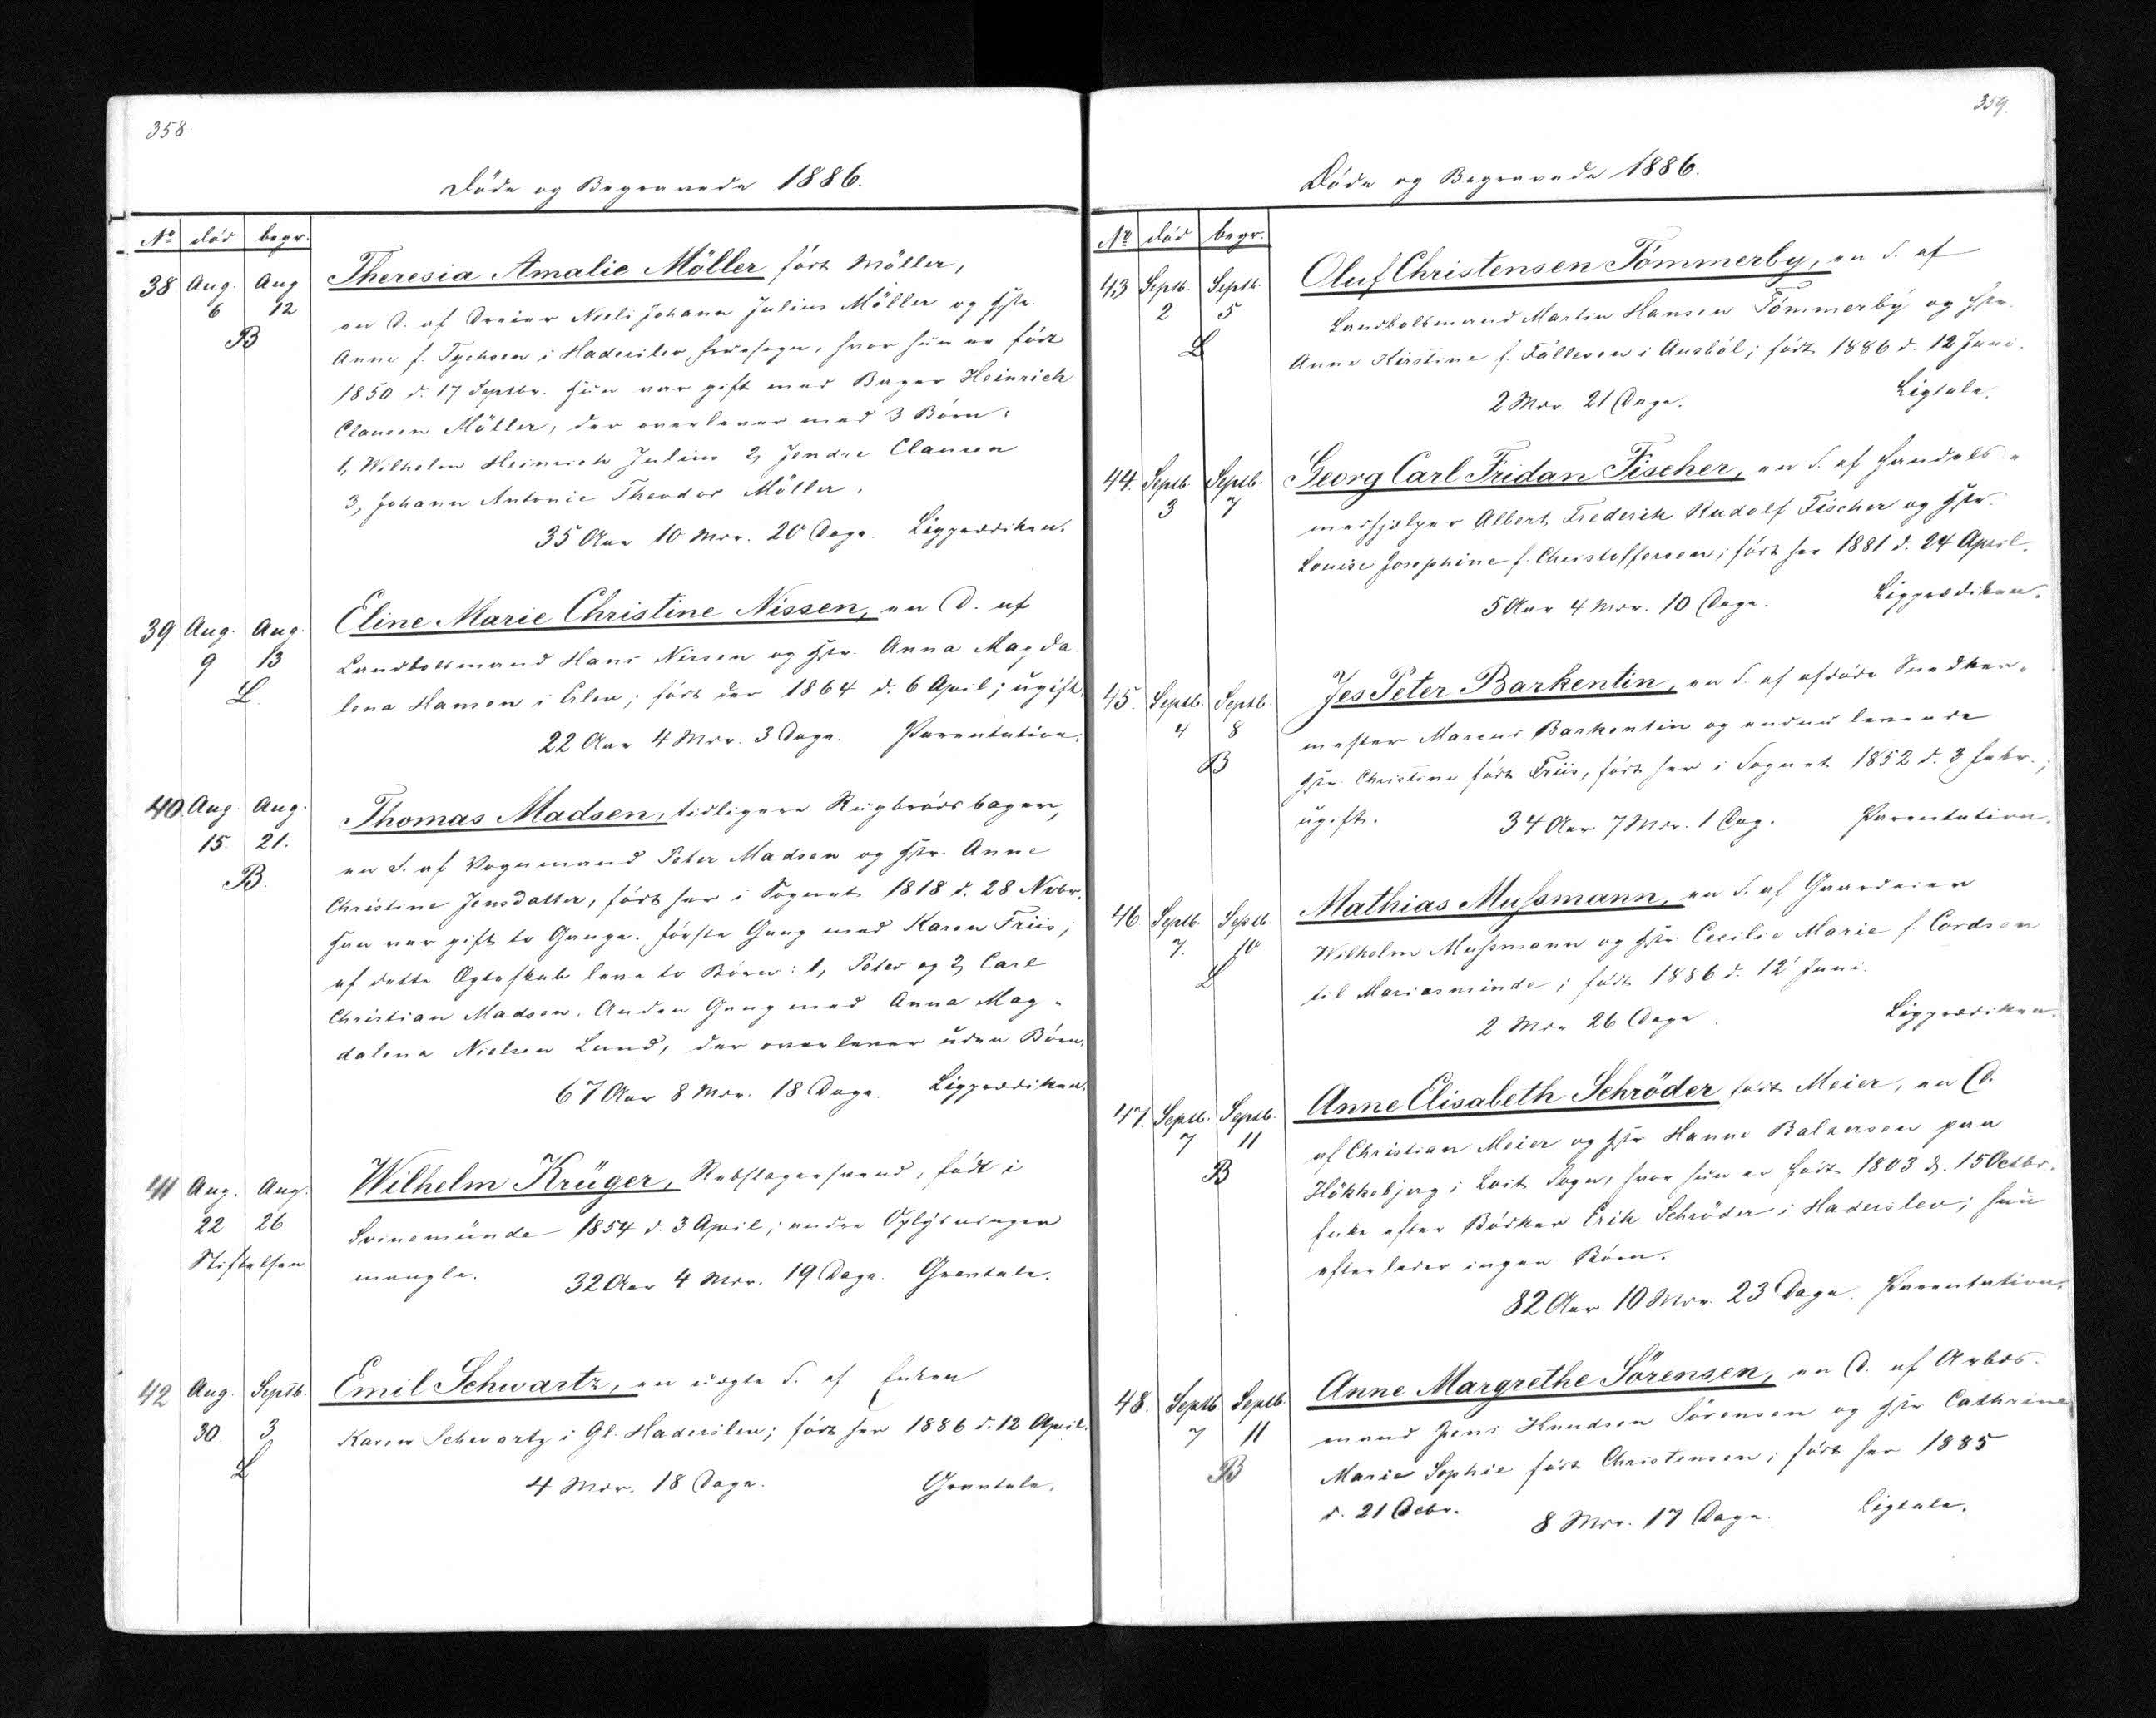 358.
Döde og Begravede 1886.
No död begr.
38 Aug. 6 Aug 12 B
Theresia Amalie Möller födt Möller,
en D. af Dreier Niels Johann Julius Möller og Hstr.
Anne f. Tychsen i Haderslev Fruesogn, hvor hun er födt
1850 d. 17 Septbr. Hun var gift med Bager Heinrich
Clausen Möller, der overlever med 3 Börn:
1, Wilhelm Heinrich Julius 2, Jendre Clausen
3, Johann Antonie Theodor Möller.
35 Aar 10 Mdr. 20 Dage. Ligprædiken.
39 Aug. 9 Aug. 13 L.
Eline Marie Christine Nissen, en D. af
Landbolsmand Hans Nissen og Hstr. Anna Magda-
lena Hansen i Erlev; födt der 1864 d. 6 April; ugift.
22 Aar 4 Mdr. 3 Dage. Parentation.
40 Aug. 15. Aug. 21. B.
Thomas Madsen, tidligere Rugbrödsbager,
en S. af Vognmand Peter Madsen og Hstr. Anne
Christine Jensdatter, födt her i Sognet 1818 d. 28 Novbr.
Han var gift to Gange. Förste Gang med Karen Friis;
af dette Ægteskab leve to Börn: 1, Peter og 2, Carl
Christian Madsen. Anden Gang med Anna Mag-
dalena Nielsen Lund, der overlever uden Börn.
67 Aar 8 Mdr. 18 Dage. Ligprædiken.
41 Aug. 22 Aug. 26 Stiftelsen
Wilhelm Krüger, Rebslagersvend, födt i
Svinemünde 1854 d. 3 April; andre Oplysninger
mangle. 32 Aar 4 Mdr. 19 Dage. Gravtale.
42 Aug. 30. Septb. 3 L
Emil Schwartz, en uægte S. af Enken
Karen Schwartz i Gl. Haderslev; födt her 1886 d. 12 April.
4 Mdr. 18 Dage. Gravtale.
359.
Döde og Begravede 1886.
No död begr.
43 Septb. 2 Septb. 5 L
Oluf Christensen Tömmerby, en S. af
Landbolsmand Martin Hansen Tömmerby og Hstr.
Anne Kirstine f. Föllesen i Ausböl; födt 1886 d. 12 Juni.
2 Mdr. 21 Dage. Ligtale.
44. Septb. 3 Septb. 7
Georg Carl Fridan Fischer, en S. af Handels-
medhjælper Albert Frederik Rudolf Fischer og Hstr.
Louise Josephine f. Christoffersen; födt her 1881 d. 24 April.
5 Aar 4 Mdr. 10 Dage. Ligprædiken.
45. Septb. 4 Septb. 8 B
Jes Peter Barkentin, en S. af afdöde Snedker-
mester Marcus Barkentin og endnu levende
Hstr. Christine födt Friis, födt her i Sognet 1852 d. 3 Febr.;
ugift. 34 Aar 7 Mdr. 1 Dag. Parentation.
46 Septb. 7. Septb 10 L
Mathias Mussmann, en S. af Gaardeier
Wilhelm Mussmann og Hstr. Cecilie Marie f. Cordsen
til Mariasminde; födt 1886 d. 12 Juni.
2 Mdr 26 Dage. Ligprædiken.
47. Septb. 7 Septb. 11 B
Anne Elisabeth Schröder födt Meier, en D.
af Christian Meier og Hstr Hanne Balzersen paa
Hökkebjerg i Loit Sogn, hvor hun er födt 1803 d. 15 Octbr.
Enke efter Bödker Erik Schröder i Haderslev; hun
efterlader ingen Börn.
82 Aar 10 Mdr. 23 Dage. Parentation.
48. Septb. 7 Septb. 11 B
Anne Margrethe Sörensen, en D. af Arbds-
mand Jens Knudsen Sörensen og Hstr Cathrine
Marie Sophie födt Christensen; födt her 1885
d. 21 Decbr. 8 Mdr. 17 Dage. Ligtale.